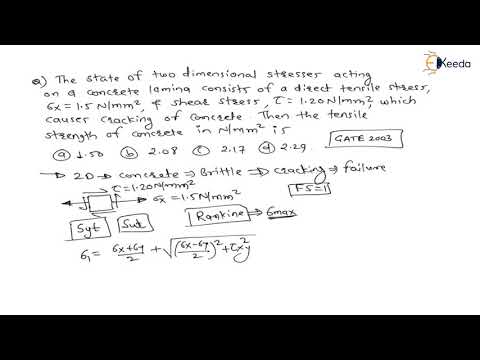 Ekeeda
Q) The state of two dimensional stresses acting
on a concrete lamina consists of a direct tensile stress,
6x = 1.5 N/mm², & shear stress, τ = 1.20 N/mm², which
causes cracking of concrete. Then the tensile
strength of concrete in N/mm² is
GATE 2003
ⓐ 1.50 ⓑ 2.08 ⓒ 2.17 ⓓ 2.29
→ 2D → concrete → Brittle → cracking → failure
τ = 1.20 N/mm²
FS = 1
6x = 1.5 N/mm²
Syt Sut Rankine → 6max
6₁ = 6x+6y/2 + √(6x-6y/2)² + τxy²